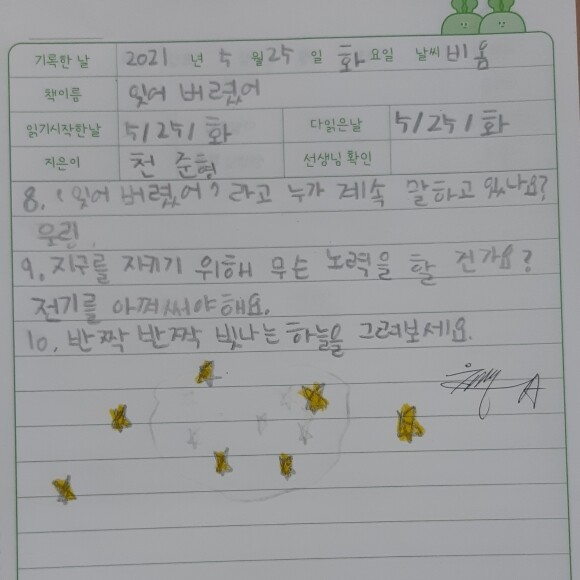 기록한 날 2021 년 5 월 25 일 화 요일 날씨 비 옴
책이름 잊어 버렸어
읽기시작한날 5/25/화 다읽은날 5/25/화
지은이 천 준형 선생님 확인
8. '잊어 버렸어' 라고 누가 계속 말하고 있나요?
9. 지구를 지키기 위해 무슨 노력을 할 건가요?
전기를 아껴써야해요.
10. 반짝 반짝 빛나는 하늘을 그려보세요.